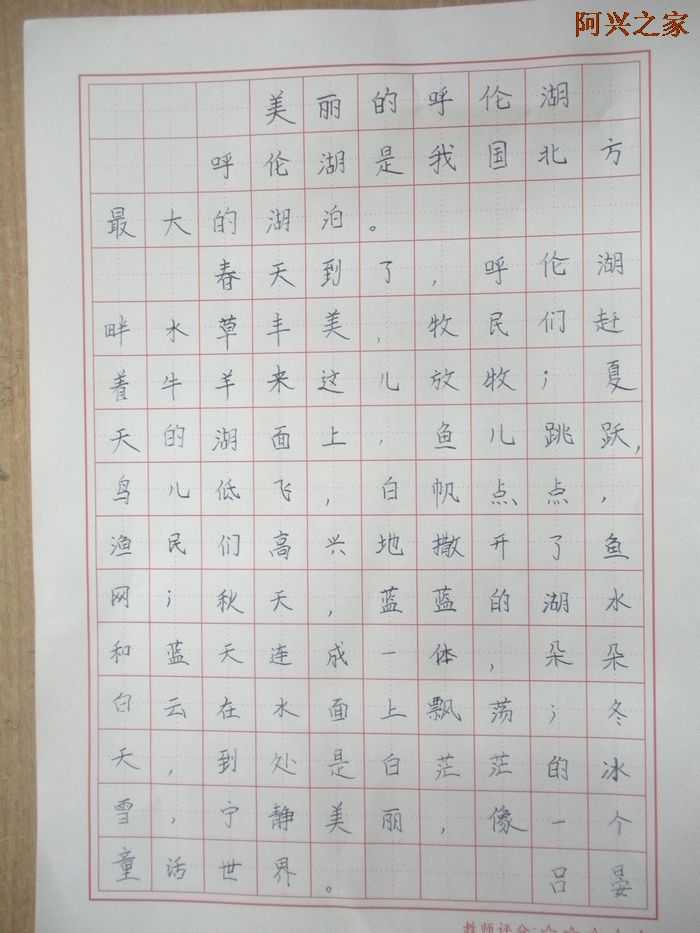 阿兴之家
美丽的呼伦湖
呼伦湖是我国北方
最大的湖泊。
春天到了，呼伦湖
畔水草丰美，牧民们赶
着牛羊来这儿放牧；夏
天的湖面上，鱼儿跳跃，
鸟儿低飞，白帆点点，
渔民们高兴地撒开了鱼
网；秋天，蓝蓝的湖水
和蓝天连成一体，朵朵
白云在水面上飘荡；冬
天，到处是白茫茫的冰
雪，宁静美丽，像一个
童话世界。 吕晏
教师评分：